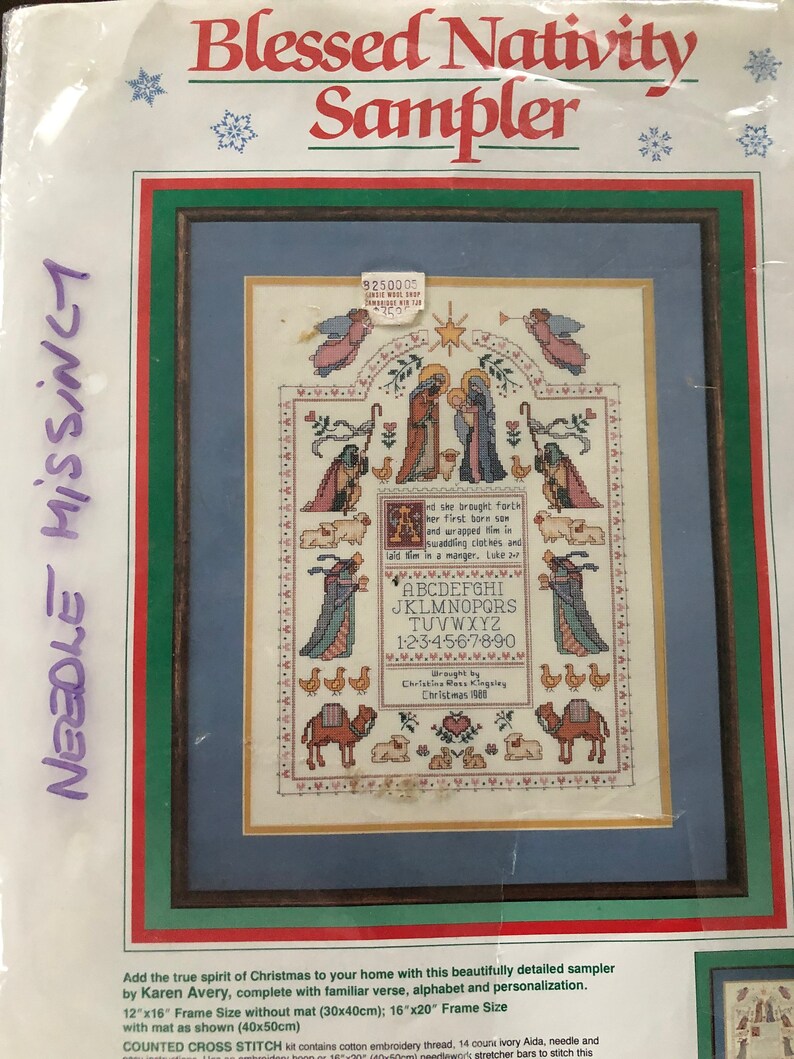 Blessed Nativity
Sampler
NEEDLE MISSING
8250005
WOOL SHOP
CAMBRIDGE N1R 7J8
And she brought forth
her first born son
and wrapped Him in
swaddling clothes and
laid Him in a manger. Luke 2•7
ABCDEFGHI
JKLMNOPQRS
TUVWXYZ
1·2·3·4·5·6·7·8·9·0
Wrought by
Christina Ross Kingsley
Christmas 1988
Add the true spirit of Christmas to your home with this beautifully detailed sampler
by Karen Avery, complete with familiar verse, alphabet and personalization.
12"x16" Frame Size without mat (30x40cm); 16"x20" Frame Size
with mat as shown (40x50cm)
COUNTED CROSS STITCH kit contains cotton embroidery thread, 14 count ivory Aida, needle and
easy instructions. Use an embroidery hoop or 16"x20" (40x50cm) needlework stretcher bars to stitch this